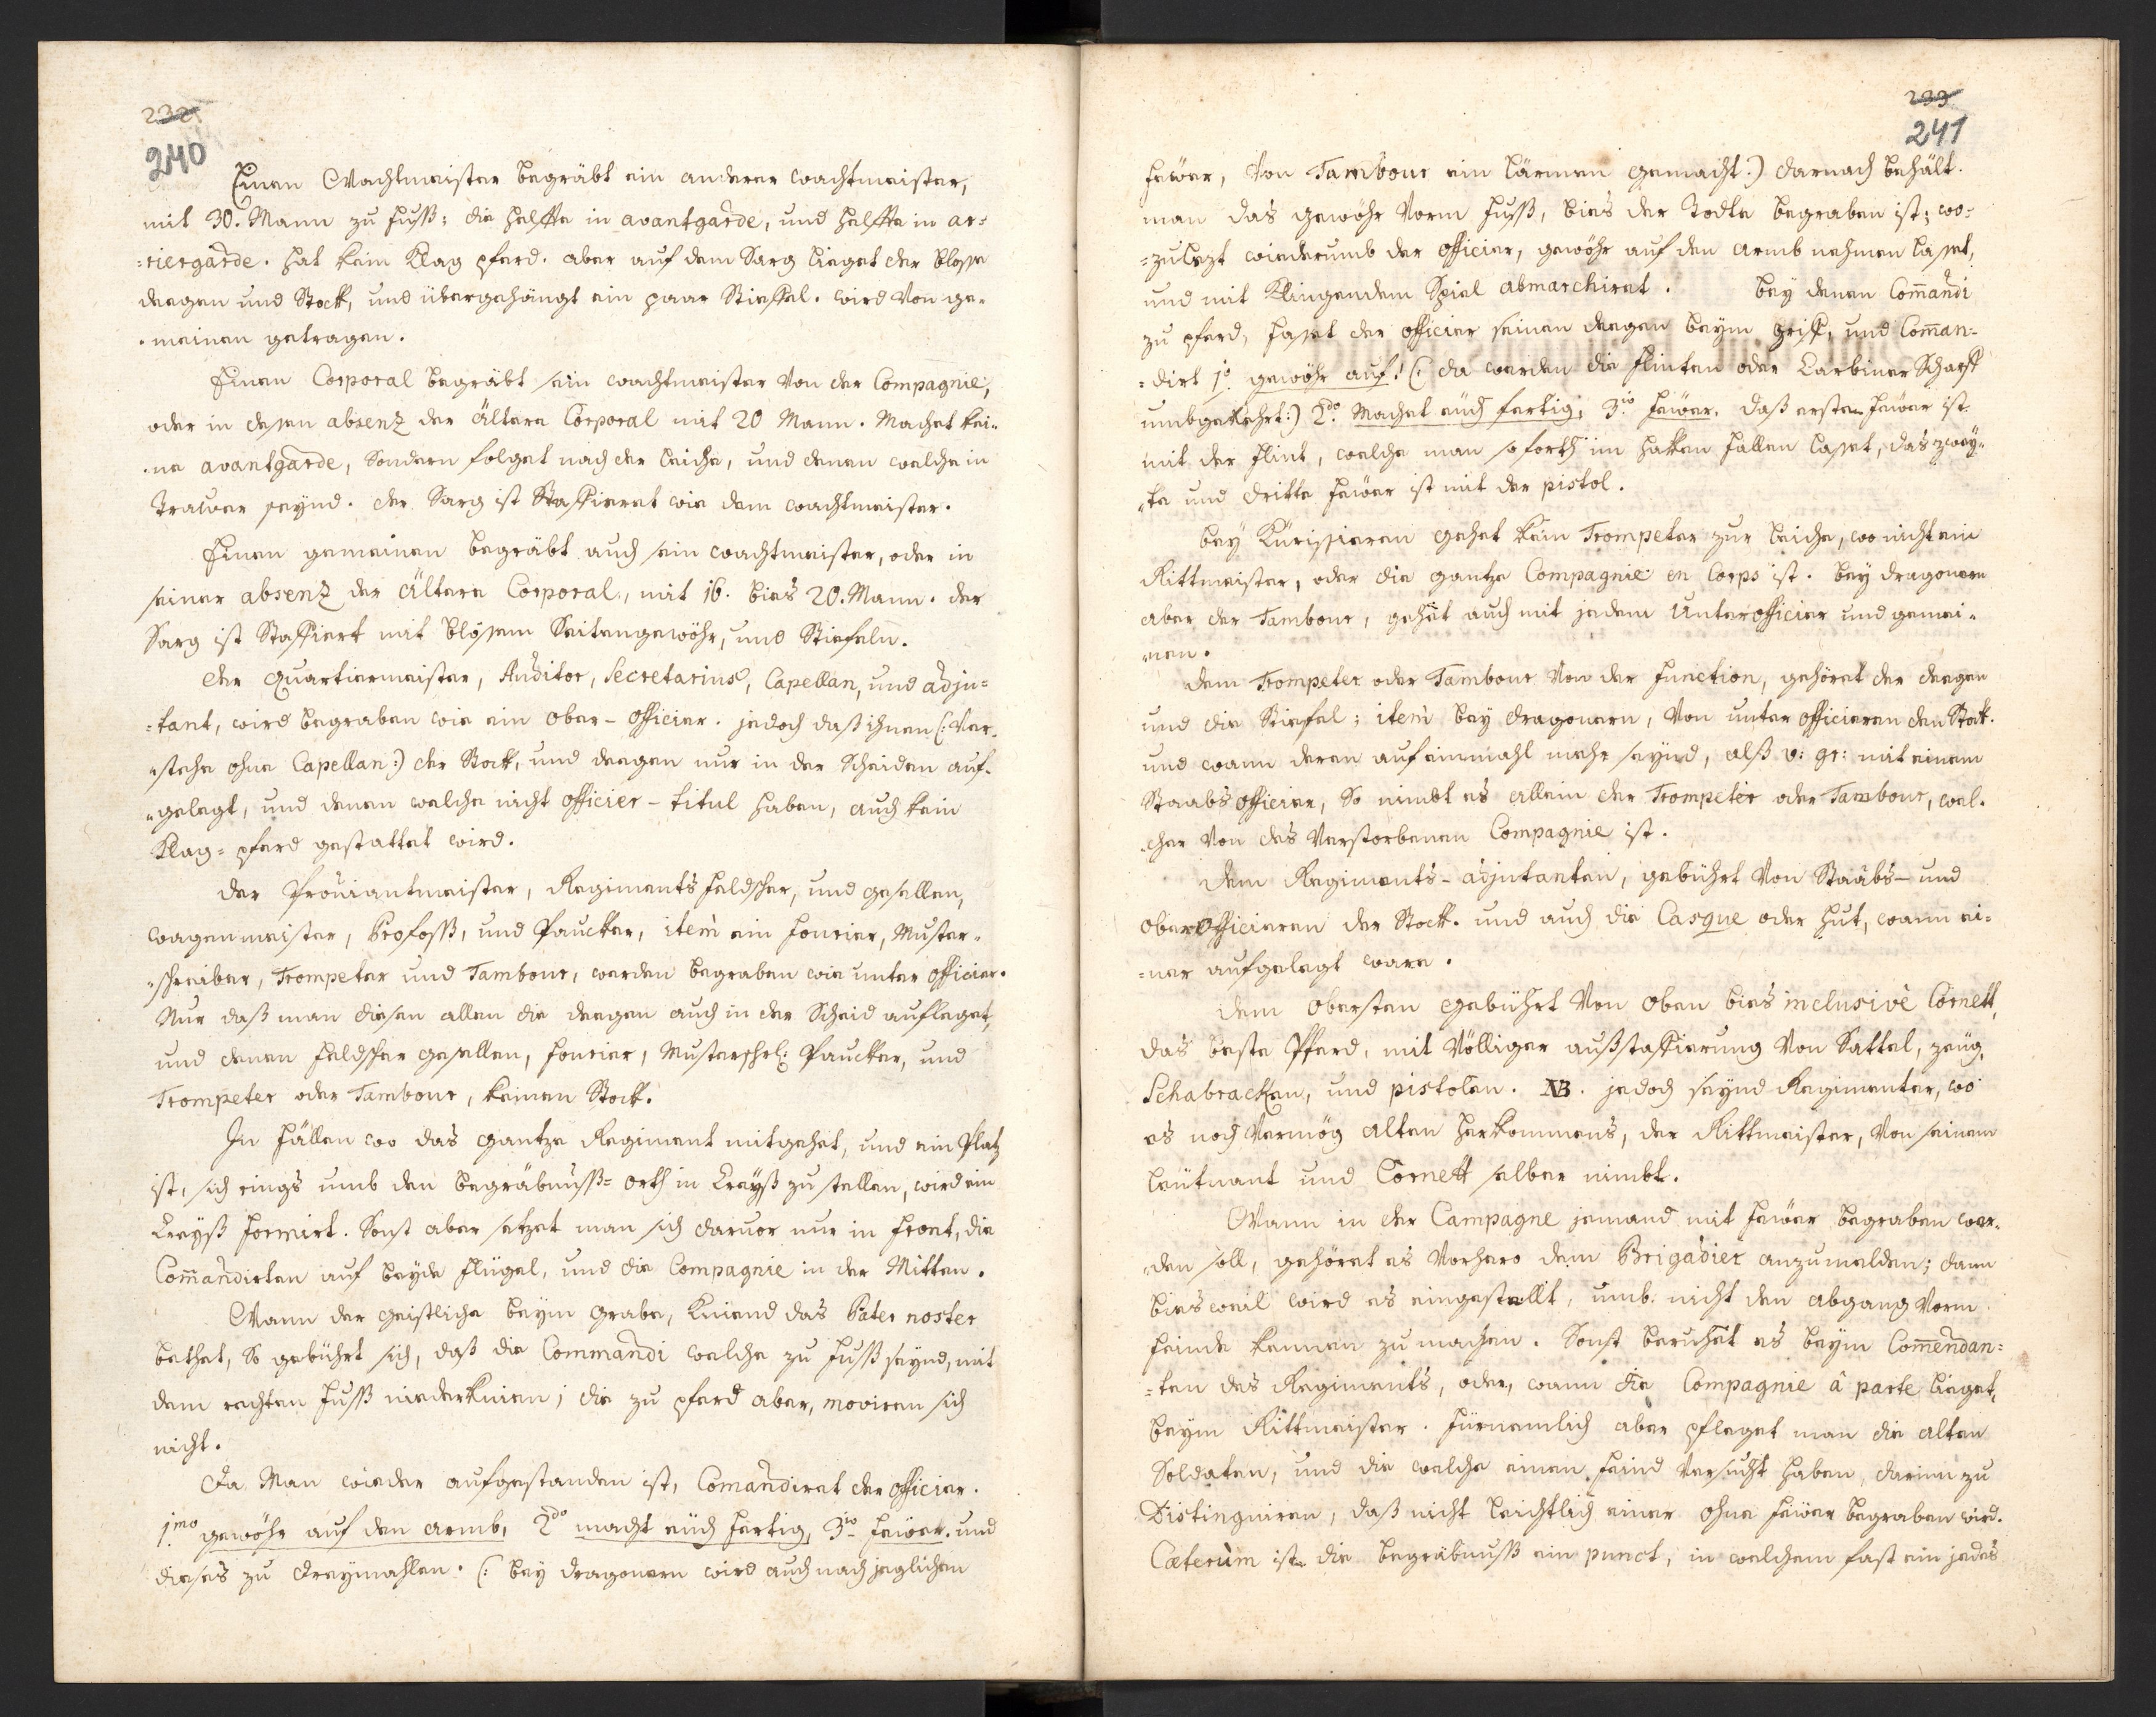 232.
240
Einen Wachtmeister begräbt ein anderer wachtmeister,
mit 30. Mann zu fuß: die helffte in avantgarde, und helffte in ar=
=riergarde. hat kein Klag pferd. aber auf dem Sarg lieget der blosse
deegen und Stock, und übergehängt ein paar Stieffel. wird von ge-
-meinen getragen.
Einen Corporal begräbt sein wachtmeister von der Compagnie,
oder in dessen absenz der ältere Corporal mit 20 Mann. Machet kei-
-ne avantgarde, Sondern folget nach der leiche, und denen welche in
Trawer seynd. der Sarg ist Staffieret wie dem wachtmeister.
Einen gemeinen begräbt auch sein wachtmeister, oder in
seiner absenz der ältere Corporal, mit 16. bies 20. Mann. der
Sarg ist Staffiert mit blossem Seitengewöhr, und Stiefeln.
der quartiermeister, Auditor, Secretarius, Capellan, und adju=
=tant, wird begraben wie ein ober-officier. jedoch daß ihnen (: ver-
-stehe ohne Capellan:) der Stock, und deegen nur in der scheiden auf-
-gelegt, und denen welche nicht officier-titul haben, auch kein
Klag=pferd gestattet wird.
der Proviantmeister, Regiments feldscher, und gesellen,
wagenmeister, Profoß, und Paucker, item ein fourier, Muster-
-schreiber, Trompeter und Tambour, werden begraben wie unter officier.
Nur daß man diesen allen die deegen auch in der Scheid aufleget,
und denen feldscher gesellen, fourier, Musterschrb: Paucker, und
Trompeter oder Tambour, keinen Stock.
In fällen wo das gantze Regiment mitgehet, und ein Platz
ist, sich rings umb den begräbnuß=orth in Creyß zu stellen, wird ein
Creyß formirt. Sonst aber setzet man sich darvor nur in front, die
Com̅andirten auf beyde flügel, und die Compagnie in der Mitten.
Wann der geistliche beym grabe, Kniend das Pater noster
bethet, So gebührt sich, daß die Commandi welche zu fuß seynd, mit
dem rechten fuß niederknien; die zu pferd aber, moviren sich
nicht.
Da Man wieder aufgestanden ist, Comandiret der officier.
1.mo gewöhr auf den armb, 2do macht eüch fertig, 3.io feüer. und
dieses zu dreymahlen. (: bey dragonern wird auch nach jeglichen
233
241
feüer, von Tambour ein lärmen gemacht:) darnach behält
man das gewöhr vorm fuß, bies der Todte begraben ist; wo=
=zulezt wiederumb der officier, gewöhr auf den armb nehmen lasset,
und mit klingendem Spiel abmarchiret. bey denen Com̅andi
zu pferd, fasset der officier seinen deegen beym griff, und Com̅an=
=dirt 1o gewöhr auf! (: da werden die flinten oder Carbiner Scharff
umbgekehrt:) 2do. Machet eüch fertig; 3.io feüer. daß erste feüer ist
mit der flint, welche man sofort im haken fallen lasset, das zwey-
-te und dritte feüer ist mit der pistol.
bey Kürissieren gehet kein Trompeter zur leiche, wo nicht ein
Rittmeister, oder die gantze Compagnie en Corps ist. bey dragonern
aber der Tambour, gehet auch mit jedem Unterofficier und gemei-
-nen.
dem Trompeter oder Tambour von der function, gehöret der deegen
und die Stiefel; item bey dragonern, von unter officieren den Stock.
und wann deren auf einmahl mehr seynd, alß v: gr: mit einem
Staabs officier, So nimbt es allein der Trompeter oder Tambour, wel-
-cher von des verstorbenen Compagnie ist.
dem Regiments-adjutanten, gebührt von Staabs- und
ober officieren der Stock. und auch die Casque oder hut, wann ei=
=ner aufgelegt ware.
dem obersten gebührt von oben bies inclusivè Cornett,
das beste Pferd, mit völliger außstaffierung von Sattel, zeüg,
Schabracken, und pistolen. NB. jedoch seynd Regimenter, wo
es noch vermög alten herkommens, der Rittmeister, von seinem
leütnant und Cornett selber nimbt.
Wann in der Campagne jemand mit feüer begraben wer-
-den soll, gehöret es vorhero dem Brigadier anzumelden; dann
biesweil wird es eingestellt, umb nicht den abgang vorm
feinde kennen zu machen. Sonst beruhet es beym Com̅endan=
=ten des Regiments, oder, wann die Compagnie à parte lieget,
beym Rittmeister. fürnemlich aber pfleget man die alten
Soldaten, und die welche einen feind versucht haben, darinn zu
Distinguiren, daß nicht leichtlich einer ohne feüer begraben wird.
Cæterùm ist die begräbnuß ein punct, in welchem fast ein jedes